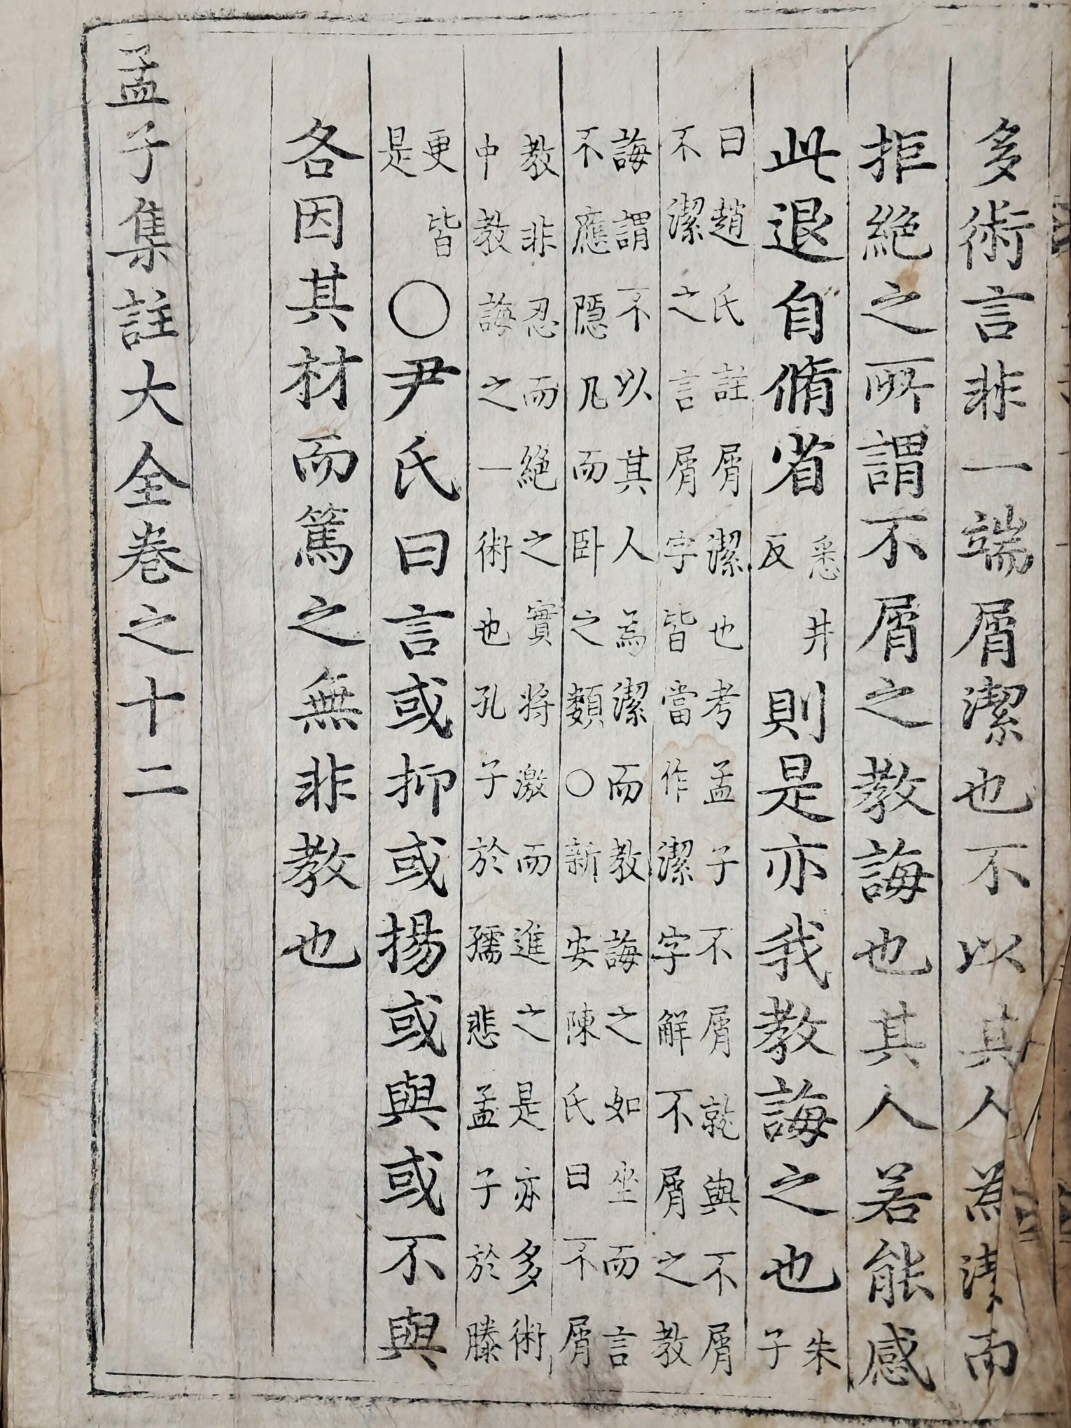 多術言非一端屑潔也不以其人為潔而
拒絶之所謂不屑之教誨也其人若能感
此退自脩省悉井反則是亦我教誨之也朱子
曰趙氏註屑潔也考孟子不屑就與不屑
不潔之言屑字皆當作潔字解不屑之教
誨謂不以其人為潔而教誨之如坐而言
不應隱几而卧之類○新安陳氏曰不屑
教非忍而絶之實將激而進之是亦多術
中教誨之一術也孔子於孺悲孟子於滕
更皆是○尹氏曰言或抑或揚或與或不與
各因其材而篤之無非教也
孟子集註大全卷之十二